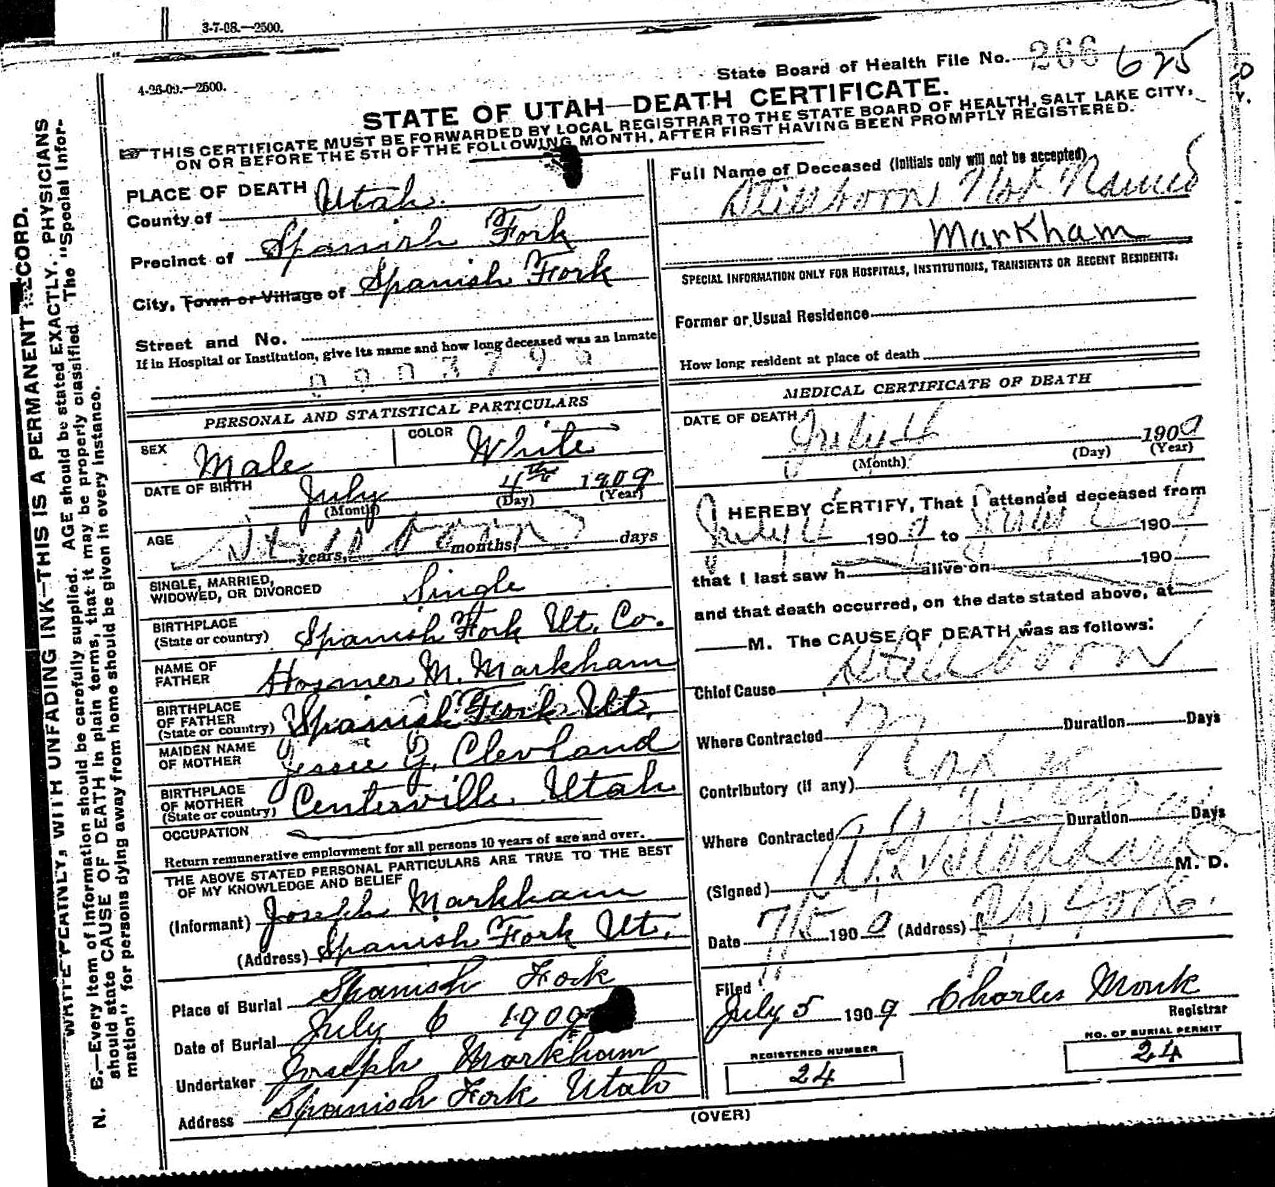 3-7-08.—2500.
4-26-09.—2500.
State Board of Health File No. 266 625
STATE OF UTAH—DEATH CERTIFICATE.
THIS CERTIFICATE MUST BE FORWARDED BY LOCAL REGISTRAR TO THE STATE BOARD OF HEALTH, SALT LAKE CITY,
ON OR BEFORE THE 5TH OF THE FOLLOWING MONTH, AFTER FIRST HAVING BEEN PROMPTLY REGISTERED.
WRITE PLAINLY, WITH UNFADING INK—THIS IS A PERMANENT RECORD.
N. B.—Every item of information should be carefully supplied. AGE should be stated EXACTLY. PHYSICIANS
should state CAUSE OF DEATH in plain terms, that it may be properly classified. The "Special Infor-
mation" for persons dying away from home should be given in every instance.
PLACE OF DEATH
County of Utah.
Precinct of Spanish Fork
City, Town or Village of Spanish Fork
Street and No.
If in Hospital or Institution, give its name and how long deceased was an Inmate
PERSONAL AND STATISTICAL PARTICULARS
SEX Male
COLOR White
DATE OF BIRTH July 4th 1909
(Month) (Day) (Year)
AGE Stillborn
years, months, days
SINGLE, MARRIED,
WIDOWED, OR DIVORCED Single
BIRTHPLACE
(State or country) Spanish Fork Ut. Co.
NAME OF
FATHER Hosmer M. Markham
BIRTHPLACE
OF FATHER
(State or country) Spanish Fork Ut.
MAIDEN NAME
OF MOTHER Jessie G. Clevland
BIRTHPLACE
OF MOTHER
(State or country) Centerville Utah
OCCUPATION
Return remunerative employment for all persons 10 years of age and over.
THE ABOVE STATED PERSONAL PARTICULARS ARE TRUE TO THE BEST
OF MY KNOWLEDGE AND BELIEF
(Informant) Joseph Markham
(Address) Spanish Fork Ut.
Place of Burial Spanish Fork
Date of Burial July 6 1909
Undertaker Joseph Markham
Address Spanish Fork Utah
Full Name of Deceased (Initials only will not be accepted)
Stillborn Not Named
Markham
SPECIAL INFORMATION ONLY FOR HOSPITALS, INSTITUTIONS, TRANSIENTS OR RECENT RESIDENTS:
Former or Usual Residence
How long resident at place of death
MEDICAL CERTIFICATE OF DEATH
DATE OF DEATH July 4 1909
(Month) (Day) (Year)
I HEREBY CERTIFY, That I attended deceased from
July 4 1909 to July 4 1909
that I last saw h alive on 190
and that death occurred, on the date stated above, at
M. The CAUSE OF DEATH was as follows:
Chief Cause Stillborn
Where Contracted Duration Days
Contributory (if any) Not
Where Contracted Duration Days
(Signed) Stoddard M. D.
Date 7/5 1909 (Address)
Filed
July 5 1909 Charles Monk
Registrar
REGISTERED NUMBER
24
NO. OF BURIAL PERMIT
24
(OVER)